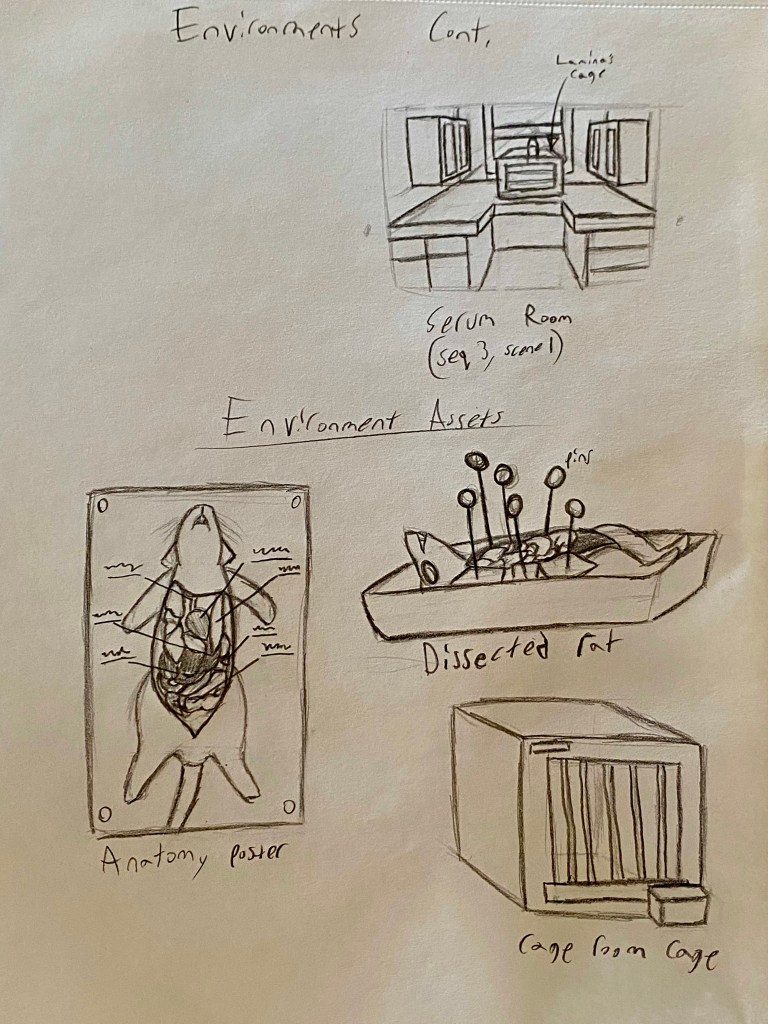 Environments Cont.
Lamina's
Cage
Serum Room
(seq 3, scene 1)
Environment Assets
pins
Dissected rat
Anatomy poster
Cage room Cage